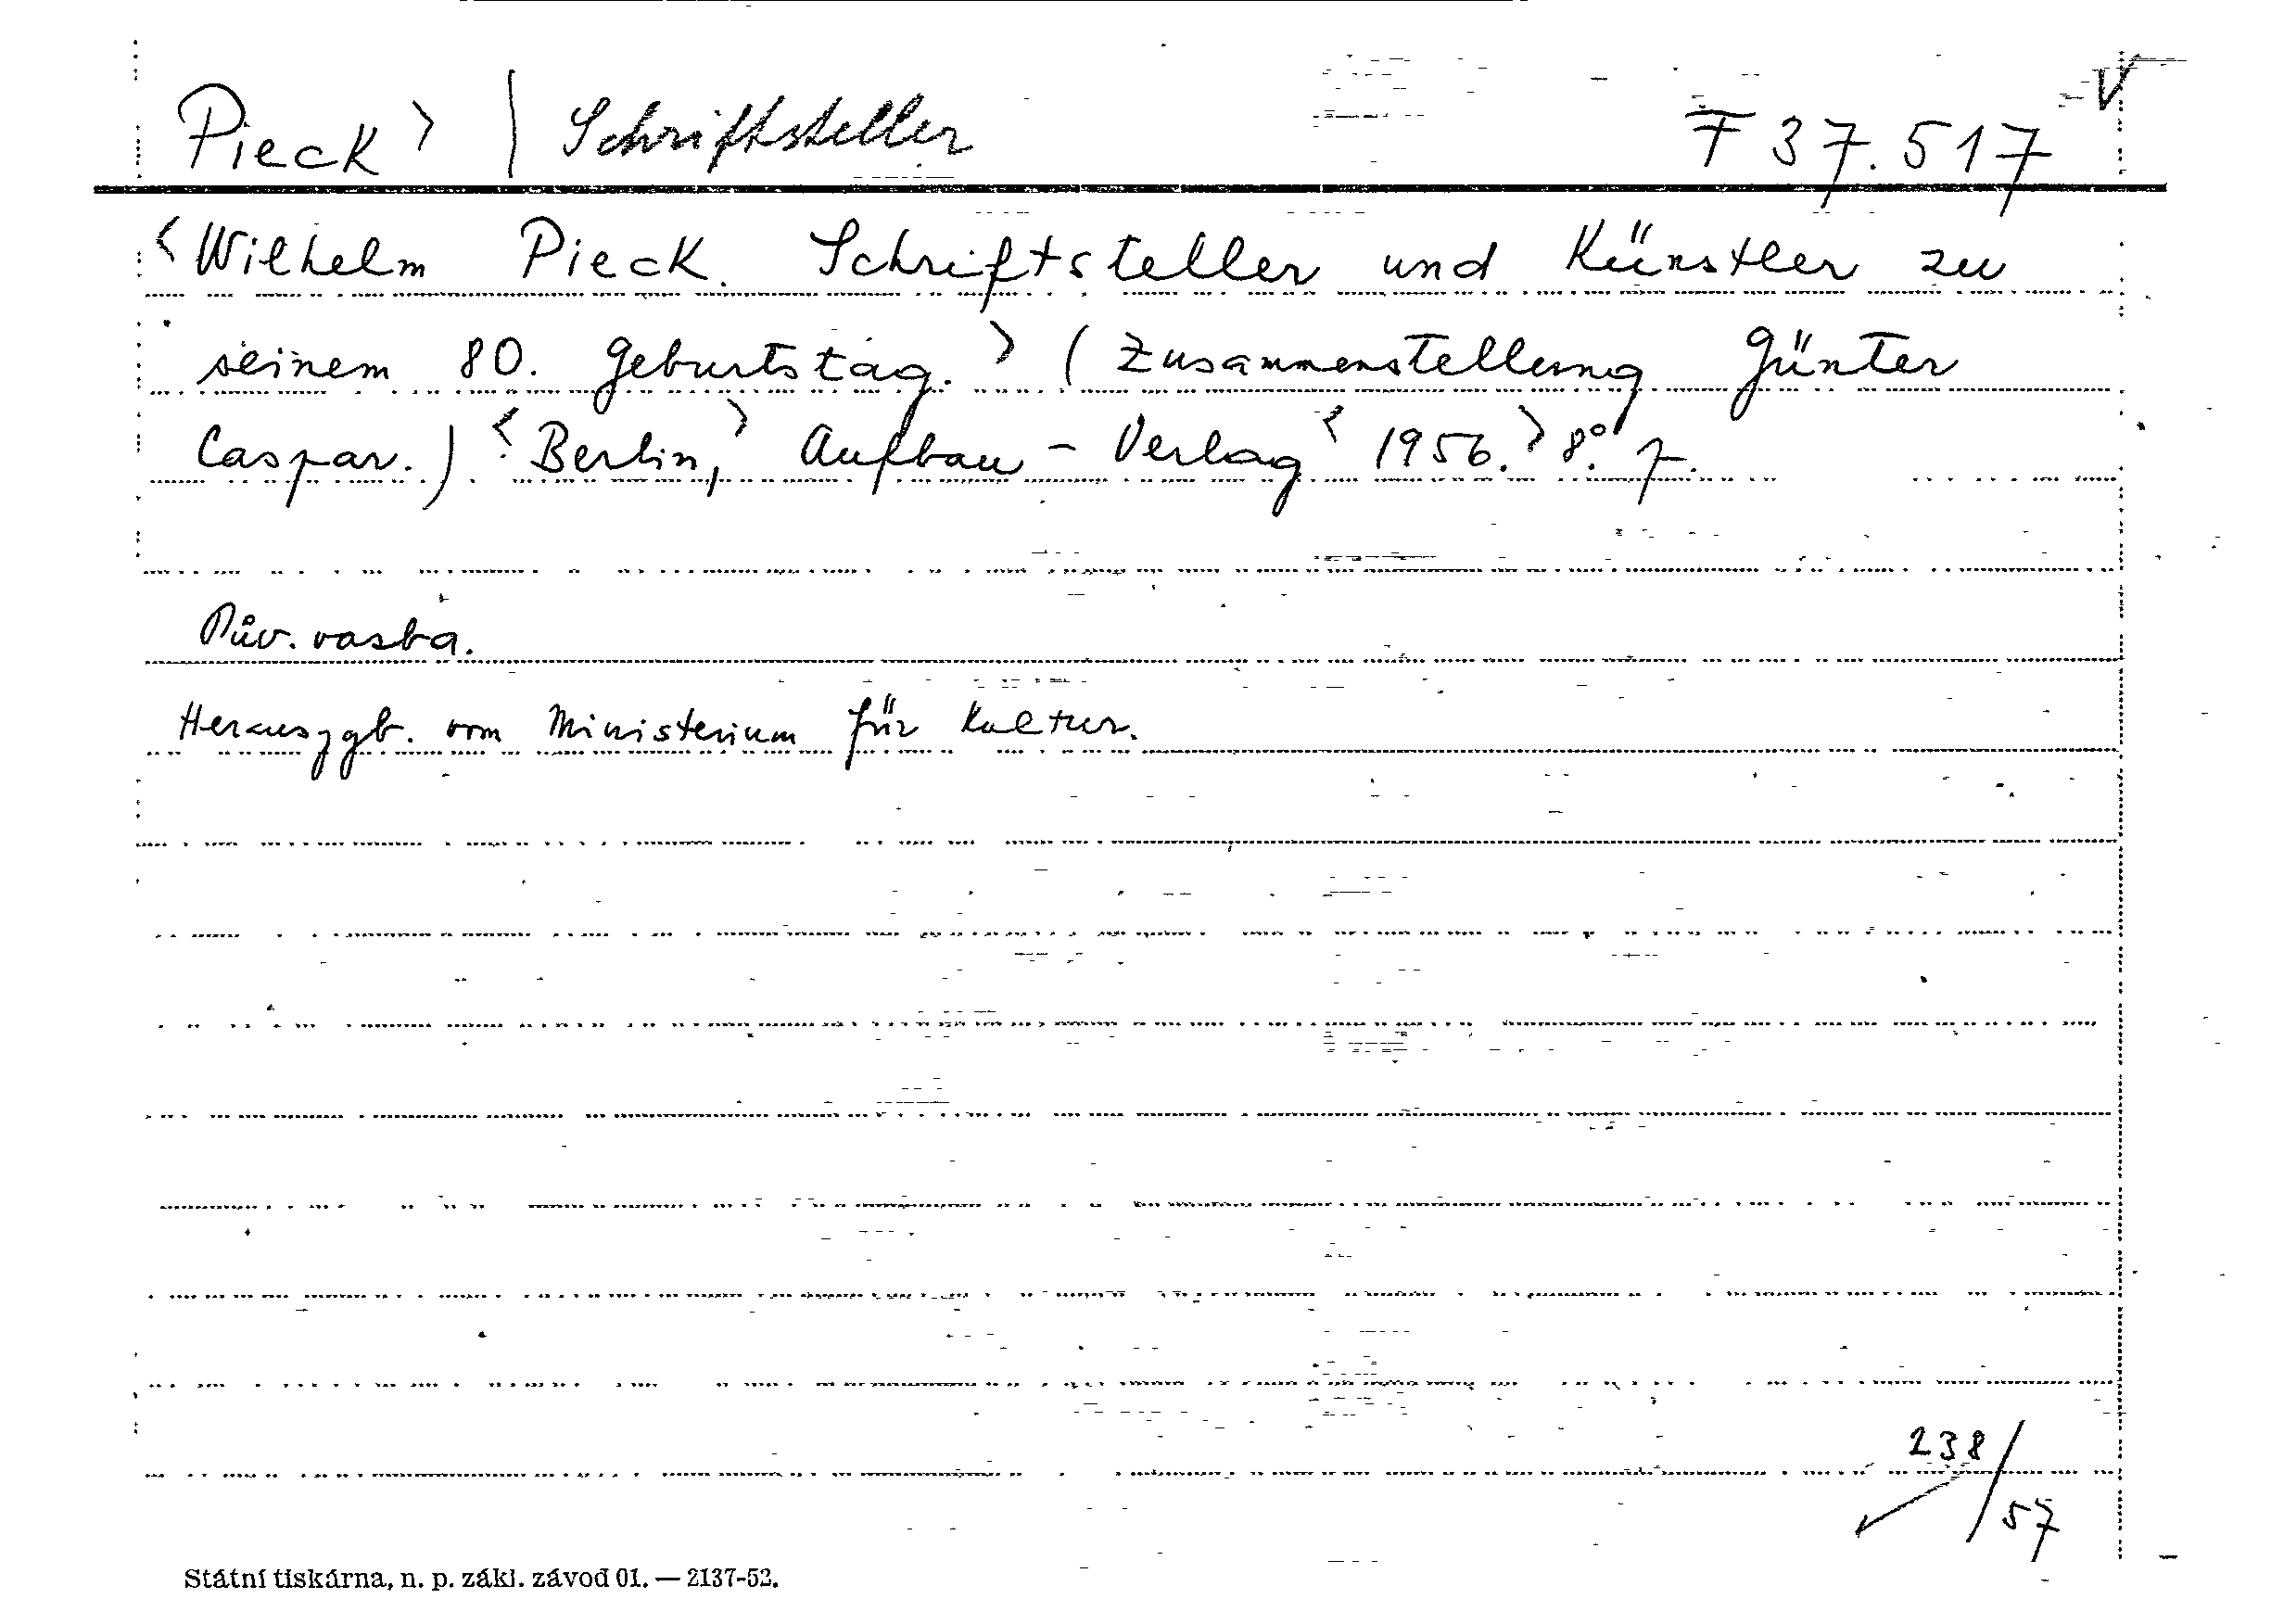 Pieck > | Schriftsteller F 37.517 V
<Wilhelm Pieck. Schriftsteller und Künstler zu
seinem 80. Geburtstag.> (Zusammenstellung Günter
Caspar.) <Berlin,> Aufbau-Verlag <1956.> 8°.
Pův. vazba.
Herausggb. vom Ministerium für Kultur.
238/57
Státní tiskárna, n. p. zákl. závod 01. — 2137-52.